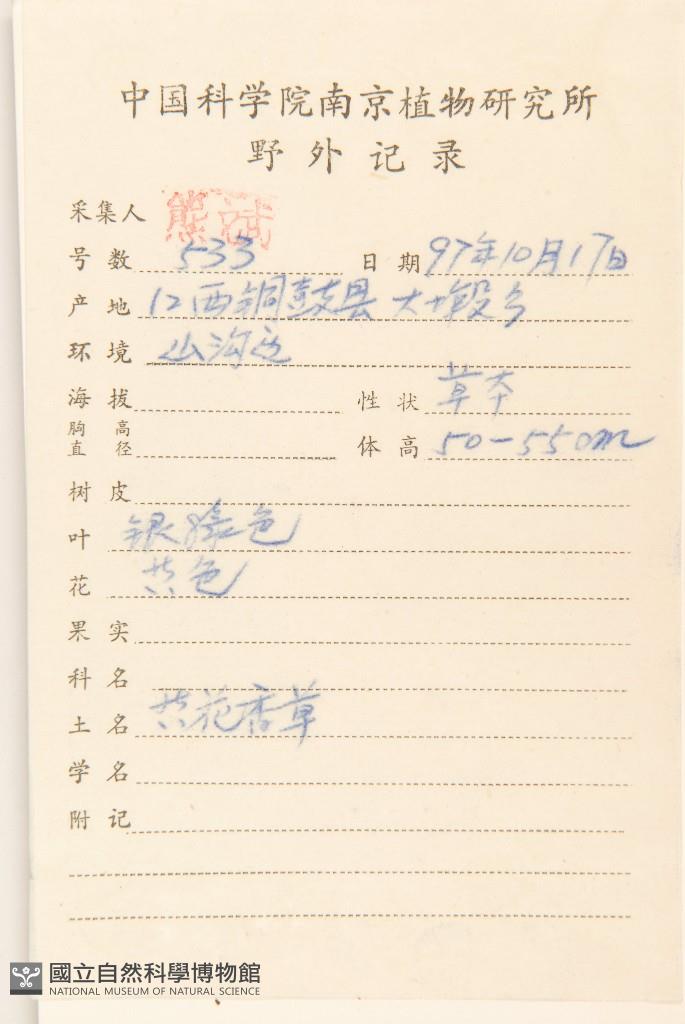 中国科学院南京植物研究所
野外记录
采集人 熊斌
号数 533 日期 97年10月17日
产地 江西铜鼓县大塅乡
环境 山沟边
海拔 性状 草本
胸高直径 体高 50-550m
树皮
叶 银绿色
花 黄色
果实
科名
土名 黄花香草
学名
附记
國立自然科學博物館
NATIONAL MUSEUM OF NATURAL SCIENCE